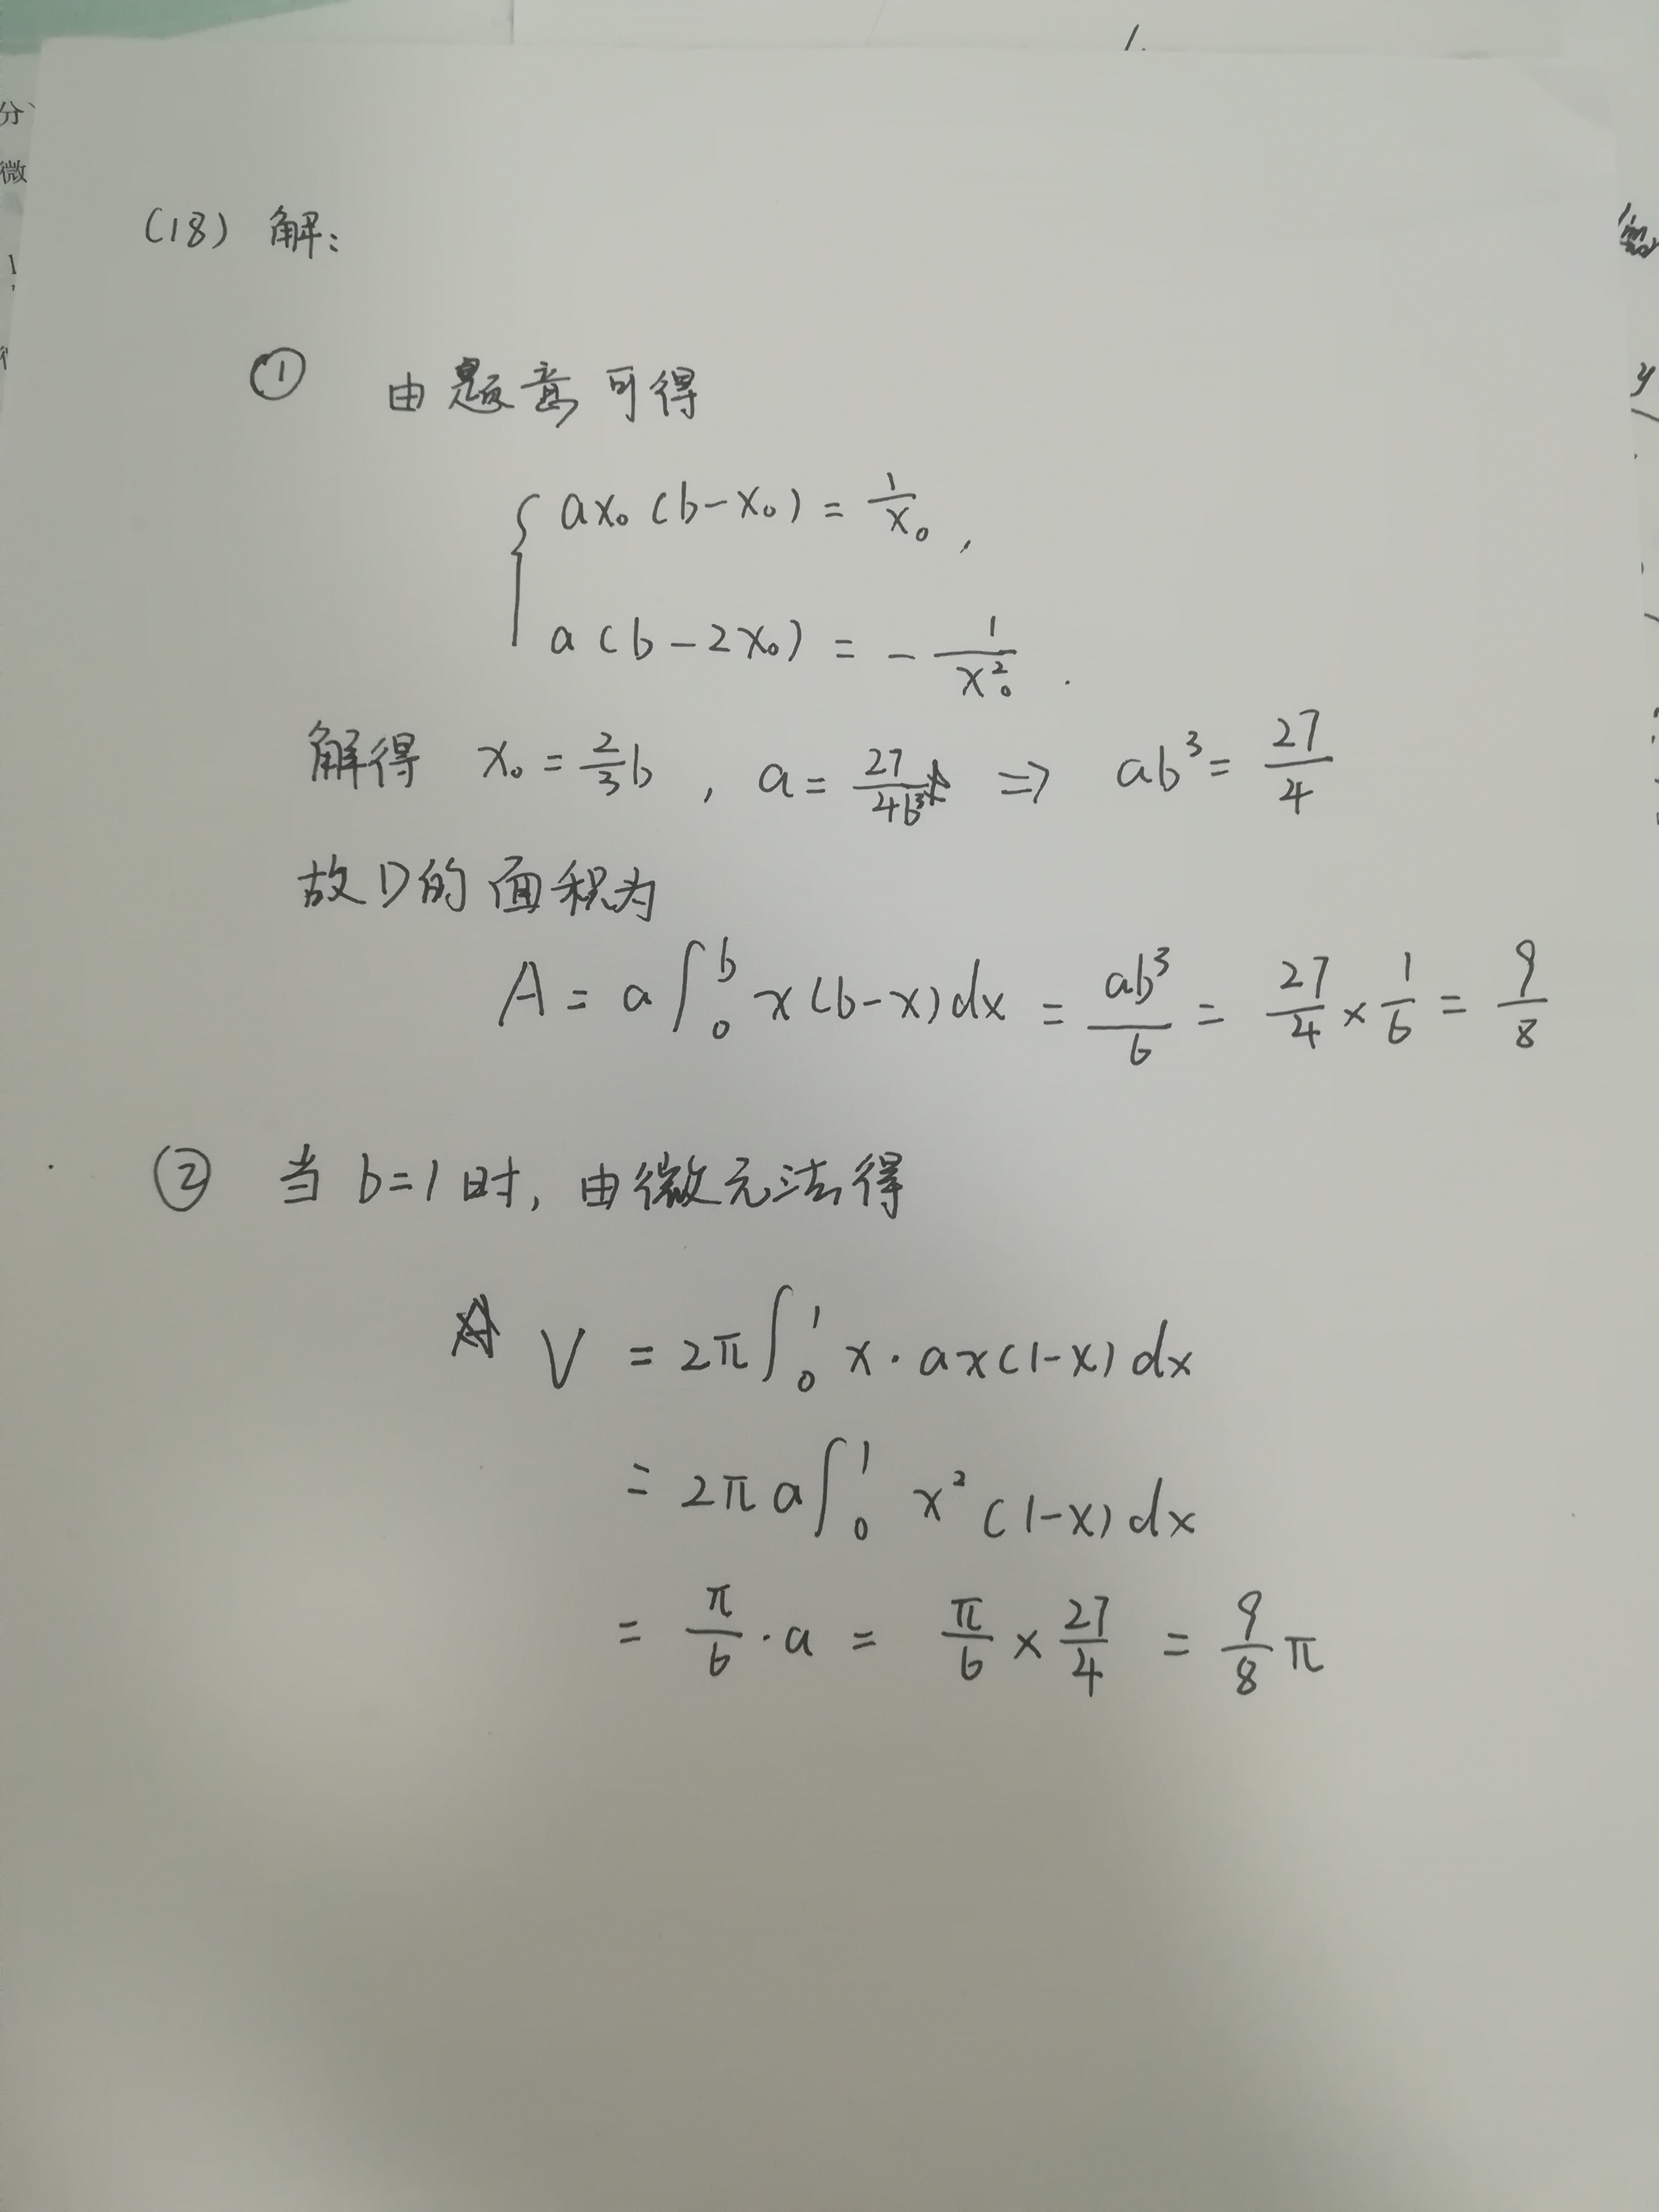 1.
分
微
(18) 解：
① 由题意可得
{ ax₀(b-x₀) = 1/x₀ ,
a(b-2x₀) = -1/x₀² .
解得 x₀ = 2/3 b , a = 27/4b³ ⇒ ab³ = 27/4
故D的面积为
A = a∫₀ᵇ x(b-x)dx = ab³/6 = 27/4 × 1/6 = 9/8
② 当 b=1 时, 由微元法得
V = 2π∫₀¹ x·ax(1-x)dx
= 2πa∫₀¹ x²(1-x)dx
= π/6 · a = π/6 × 27/4 = 9/8 π
y